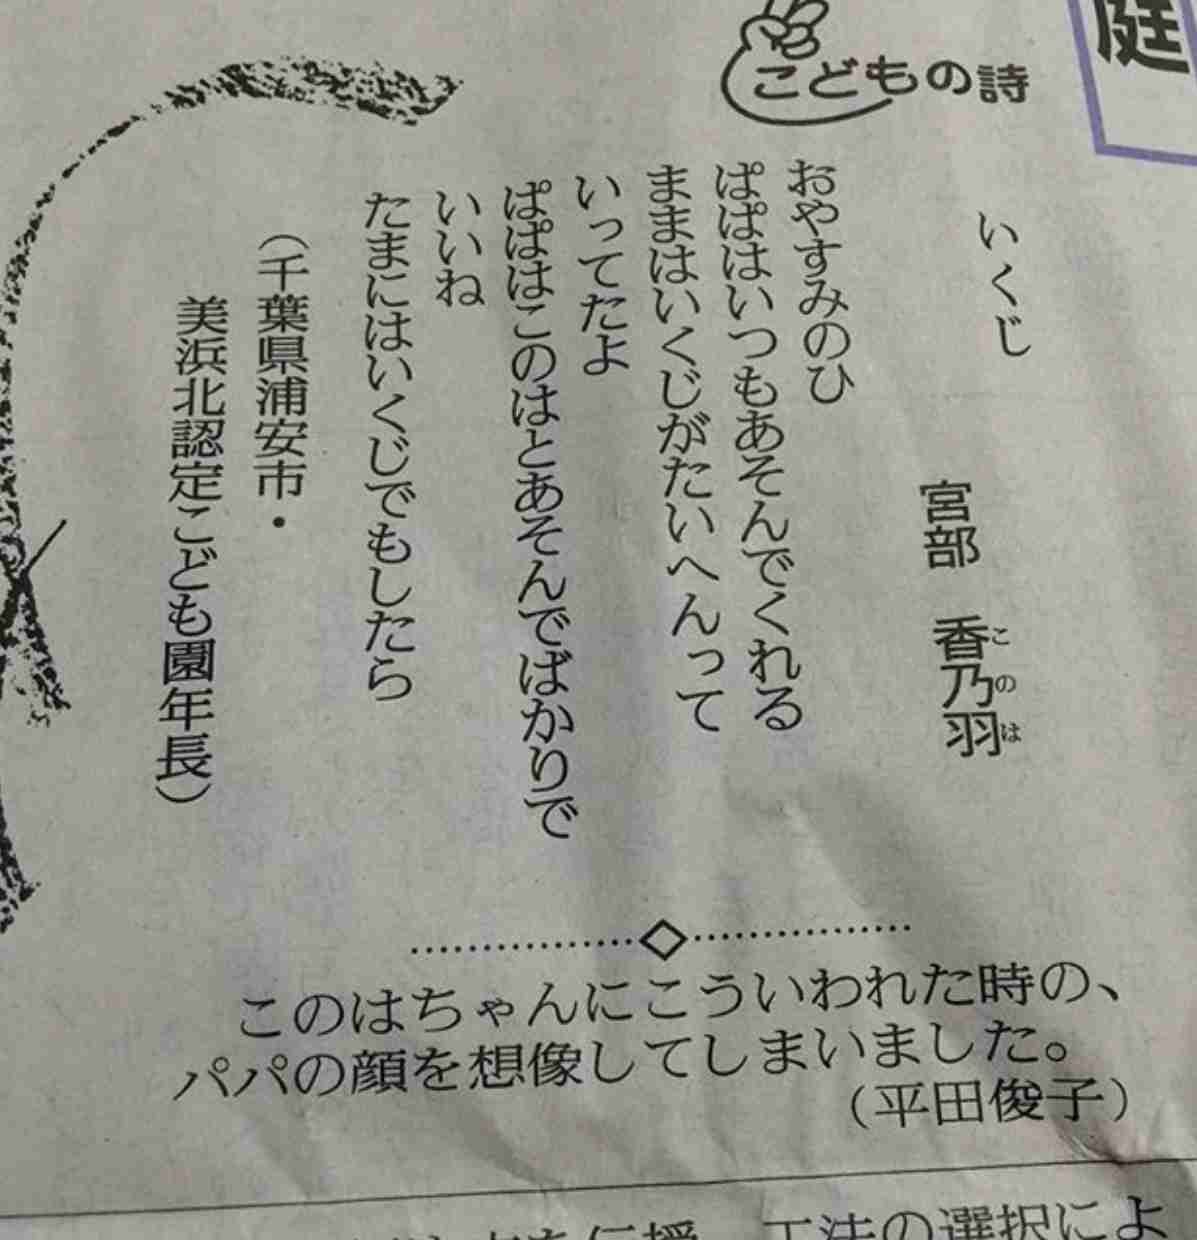 庭
こどもの詩
いくじ
宮部 香乃羽
このは
おやすみのひ
ぱぱはいつもあそんでくれる
ままはいくじがたいへんって
いってたよ
ぱぱはこのはとあそんでばかりで
いいね
たまにはいくじでもしたら
(千葉県浦安市・
美浜北認定こども園年長)
このはちゃんにこういわれた時の、
パパの顔を想像してしまいました。
(平田俊子)
工法の選択によ